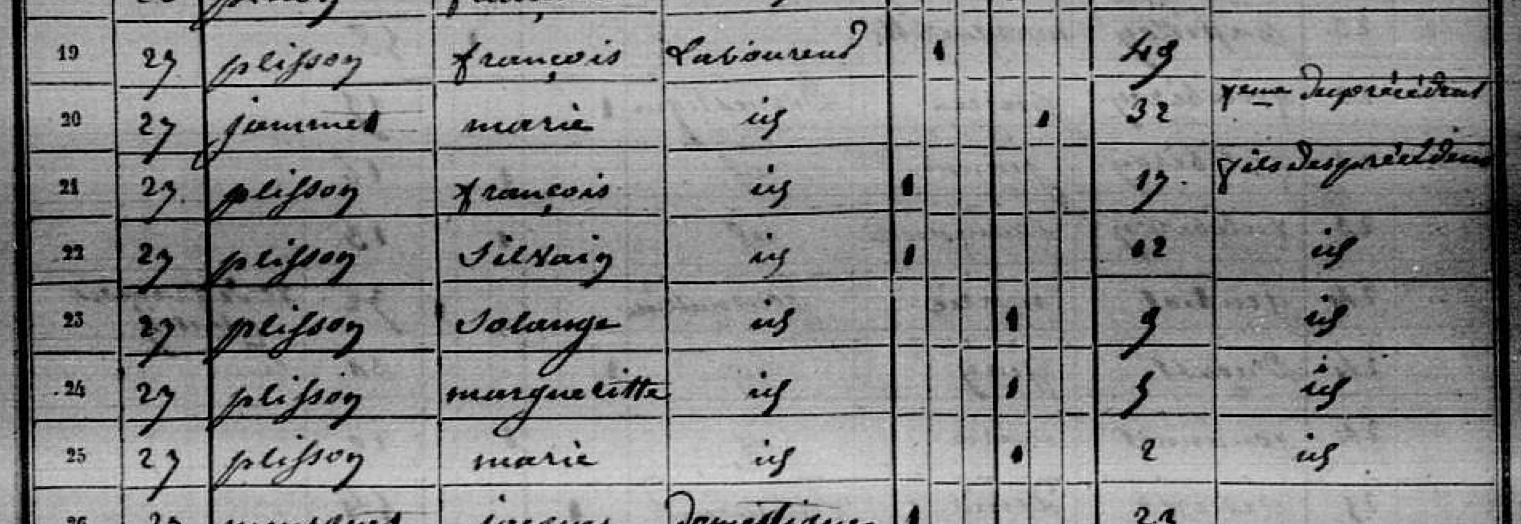 19 27 plisson françois Laboureur 49
20 27 jammet marie id 32 feme du précédent
21 27 plisson françois id 17 fils des précédens
22 27 plisson Silvain id 12 id
23 27 plisson Solange id 9 id
24 27 plisson margueritte id 5 id
25 27 plisson marie id 2 id
26 27 jacques Domestique 23